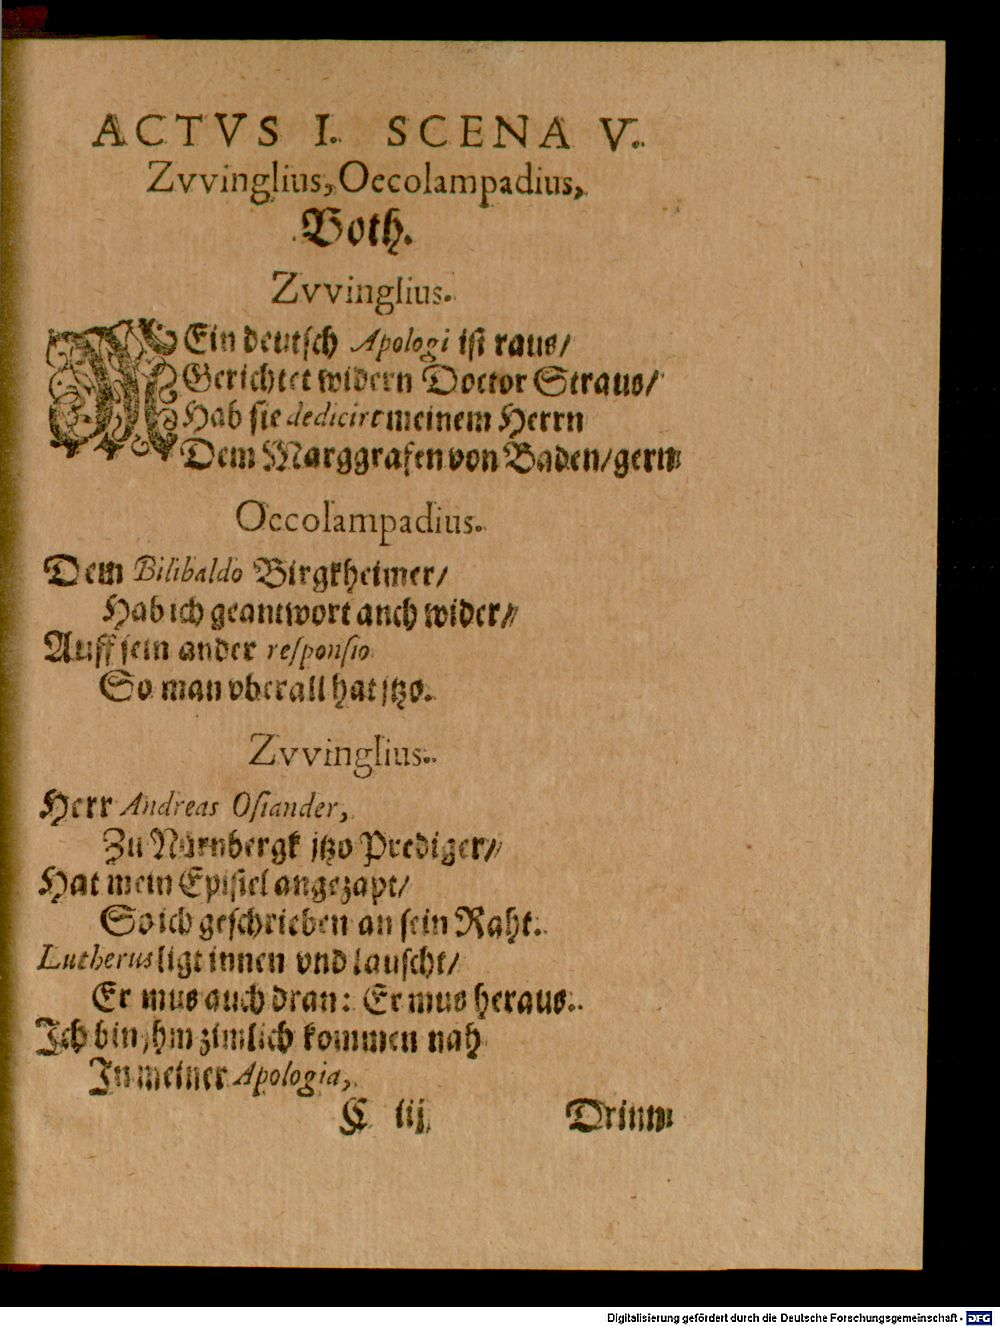 ACTVS I. SCENA V.
Zvvinglius, Oecolampadius,
Both.
Zvvinglius.
MEin deutsch Apologi ist raus/
Gerichtet widern Doctor Straus/
Hab sie dedicirt meinem Herrn
Dem Marggrafen von Baden/gern
Oecolampadius.
Dem Bilibaldo Birgkheimer/
Hab ich geantwort auch wider/
Auff sein ander responsio
So man vberall hat jtzo.
Zvvinglius.
Herr Andreas Osiander,
Zu Nürnbergk jtzo Prediger/
Hat mein Epistel angezapt/
So ich geschrieben an sein Raht.
Lutherus ligt innen vnd lauscht/
Er mus auch dran: Er mus heraus.
Ich bin jhm zimlich kommen nah
In meiner Apologia,
C iij Drinn
Digitalisierung gefördert durch die Deutsche Forschungsgemeinschaft - DFG